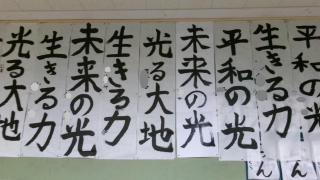 平和の光
生きる力
平和の光
未来の光
光る大地
生きる力
未来の光
生きる力
光る大地
ん
ん